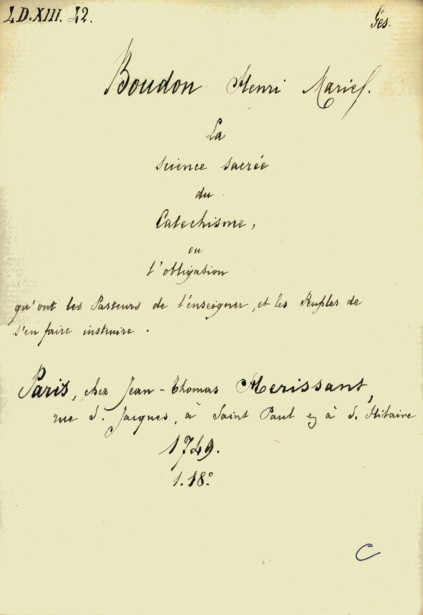 LD.XIII. 42.
Ges.
Boudon Henri Marie.
La
science sacrée
du
Catechisme,
ou
l'obligation
qu'ont les Pasteurs de l'enseigner, et les Peuples de
s'en faire instruire.
Paris, chez Jean-Thomas Herissant,
rue S. Jacques, à Saint Paul & à S. Hilaire
1749.
1.18°
C